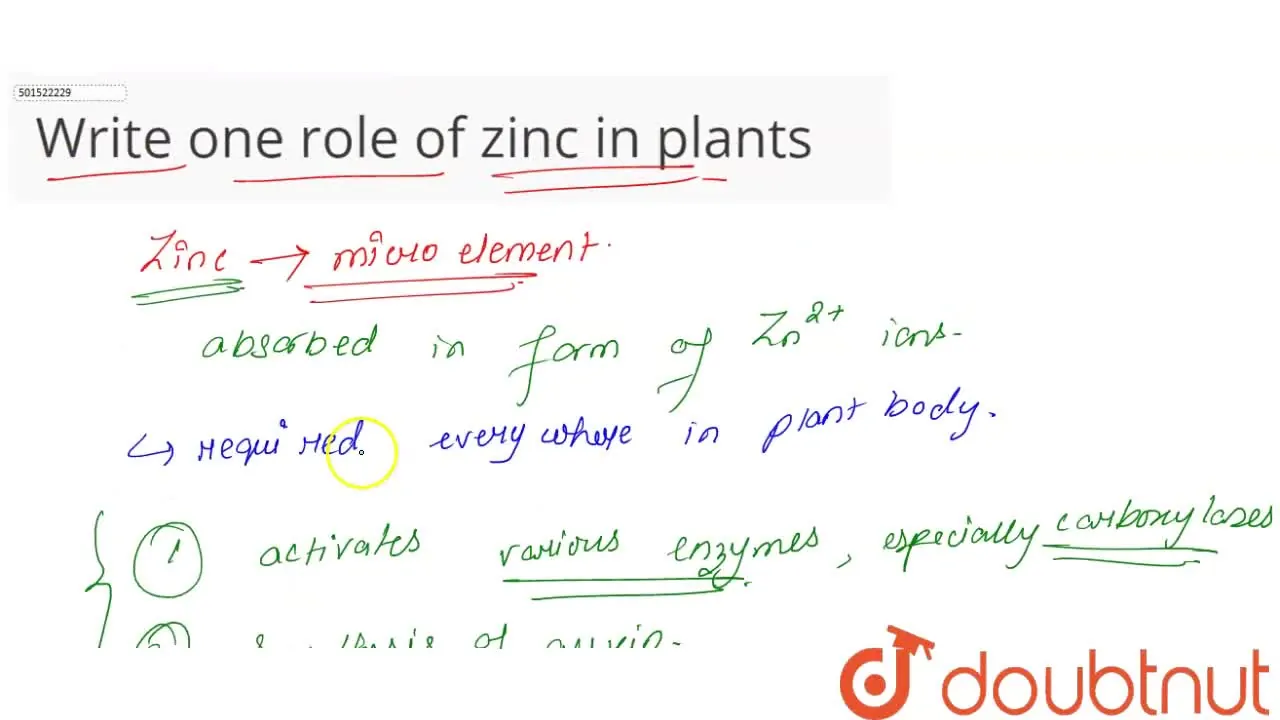 501522229
Write one role of zinc in plants
Zinc → micro element.
absorbed in form of Zn²⁺ ions-
↳ required everywhere in plant body.
1 activates various enzymes, especially carboxylases
of auxin-
doubtnut